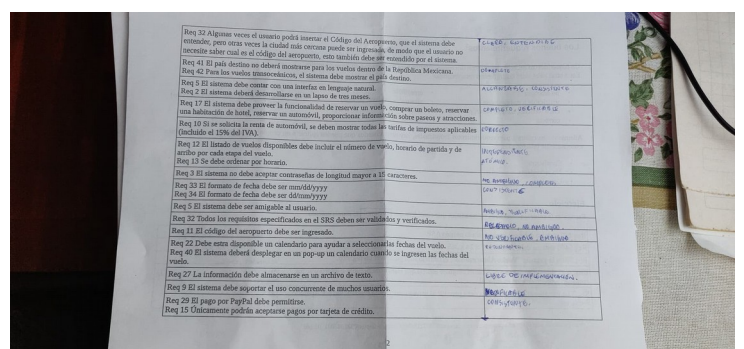 Req 32 Algunas veces el usuario podrá insertar el Código del Aeropuerto, que el sistema debe
entender, pero otras veces la ciudad más cercana puede ser ingresada, de modo que el usuario no
necesite saber cual es el código del aeropuerto, esto también debe ser entendido por el sistema.
Req 41 El país destino no deberá mostrarse para los vuelos dentro de la República Mexicana.
Req 42 Para los vuelos transoceánicos, el sistema debe mostrar el país destino.
COMPLETO
Req 5 El sistema debe contar con una interfaz en lenguaje natural.
Req 2 El sistema deberá desarrollarse en un lapso de tres meses.
ALCANZABLE - CONSISTENTE
Req 17 El sistema debe proveer la funcionalidad de reservar un vuelo, comprar un boleto, reservar
una habitación de hotel, reservar un automóvil, proporcionar información sobre paseos y atracciones.
COMPLETO - VERIFICABLE
Req 10 Si se solicita la renta de automóvil, se deben mostrar todas las tarifas de impuestos aplicables
(incluido el 15% del IVA).
CORRECTO
Req 12 El listado de vuelos disponibles debe incluir el número de vuelo, horario de partida y de
arribo por cada etapa del vuelo.
Req 13 Se debe ordenar por horario.
Req 3 El sistema no debe aceptar contraseñas de longitud mayor a 15 caracteres.
NO AMBIGUO - COMPLETO
Req 33 El formato de fecha debe ser mm/dd/yyyy
Req 34 El formato de fecha debe ser dd/mm/yyyy
Req 5 El sistema debe ser amigable al usuario.
Req 32 Todos los requisitos especificados en el SRS deben ser validados y verificados.
NO AMBIGUO
Req 11 El código del aeropuerto debe ser ingresado.
NO VERIFICABLE, AMBIGUO
Req 22 Debe estra disponible un calendario para ayudar a seleccionarlas fechas del vuelo.
Req 40 El sistema deberá desplegar en un pop-up un calendario cuando se ingresen las fechas del
vuelo.
Req 27 La información debe almacenarse en un archivo de texto.
LIBRE DE IMPLEMENTACIÓN.
Req 9 El sistema debe soportar el uso concurrente de muchos usuarios.
Req 29 El pago por PayPal debe permitirse.
Req 15 Únicamente podrán aceptarse pagos por tarjeta de crédito.
CONSISTENTE.
2